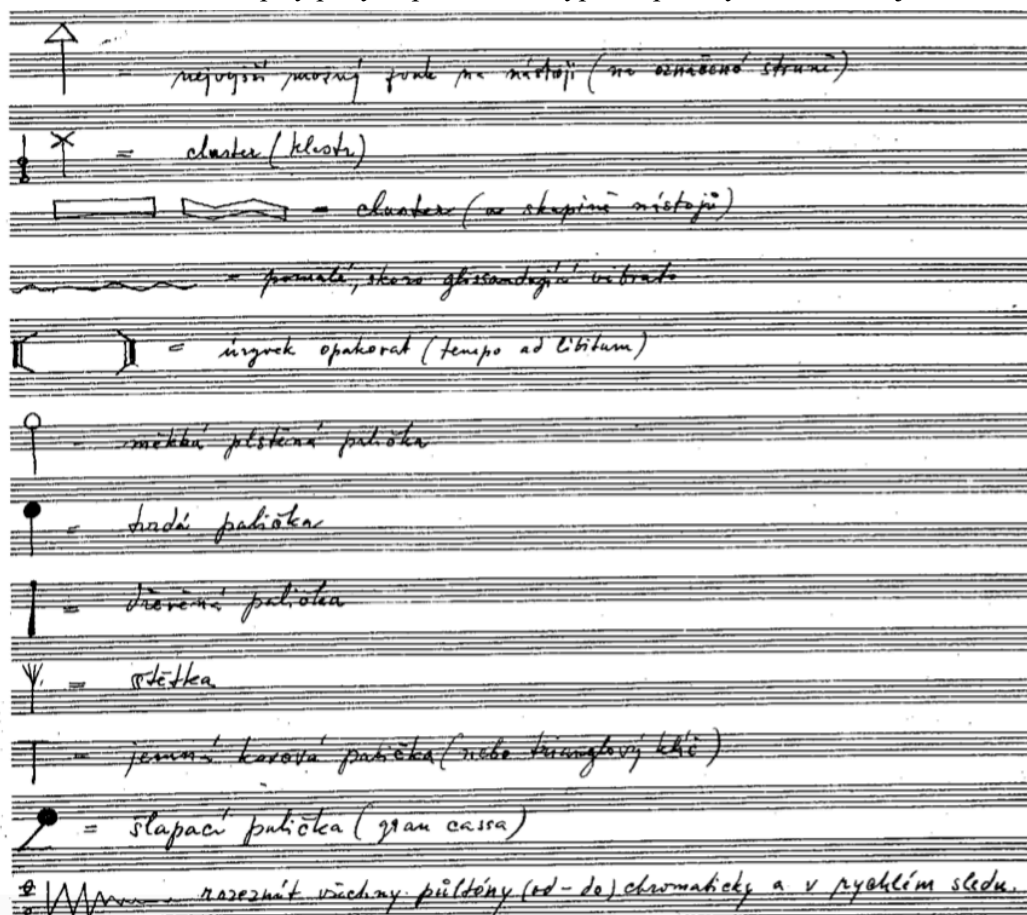 = nejvyšší možný zvuk na nástoji (na označené struně)
= cluster (klastr)
= cluster (ve skupině nástojů)
= pomalé, skoro glissandující vibrato
= úryvek opakovat (tempo ad libitum)
- měkká plstěná palička
= tvrdá palička
= dřevěná palička
= štětka
= jemná kovová palička (nebo trianglový klíč)
= šlapací palička (gran cassa)
rozeznít všechny půltóny (od - do) chromaticky a v rychlém sledu.